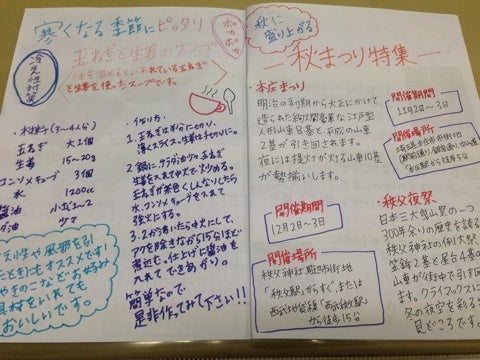 寒くなる季節にピッタリ
ポカポカ
玉ねぎと生姜のスープ
冷え性対策
玉ねぎ
と生姜を使ったスープです。
・材料(3〜4人分)
玉ねぎ 大1個
生姜 15〜20g
コンソメキューブ 3個
水 1200cc
醤油 小さじ1〜2
・作り方・
1. 玉ねぎは半分に切り、
薄くスライス。生姜は千切りに。
2. 鍋に、サラダ油少々、玉ねぎ
生姜を入れて中火で炒める。
玉ねぎが茶色くしんなりしたら
水、コンソメキューブを入れて
強火にする。
3. 2が沸いたら中火にして、
アクを除きながら15分ほど
煮込む。仕上げに醤油を
入れてできあがり。
簡単なので
是非作ってみて下さい!!
え性や風邪を引
ときにもオススメです!
やきのこなどお好み
具材をいれても
おいしいです。
秋に
盛り上がる
―秋まつり特集―
・本庄まつり
明治の初期から大正にかけて
造られた絢爛豪華な江戸型
人形山車8基と平成の山車
2基が引き回されます。
夜には提灯が灯る山車10基
が勢揃いします。
開催期間
11月2日〜3日
開催場所
埼玉県本庄市市街地
「本庄駅」から徒歩5分
開催期間
12月2日〜3日
開催場所
秩父神社、駅周辺市街地
「秩父駅」からすぐ、または
西武池袋線「西武秩父駅」
から徒歩15分
・秩父夜祭
日本三大曳山祭の一つ
300年余りの歴史を誇る
秩父神社の例大祭
笠鉾2基と屋台4基の
山車が街中で引き回
ます。クライマックスに
冬の夜空を彩る
見どころです。